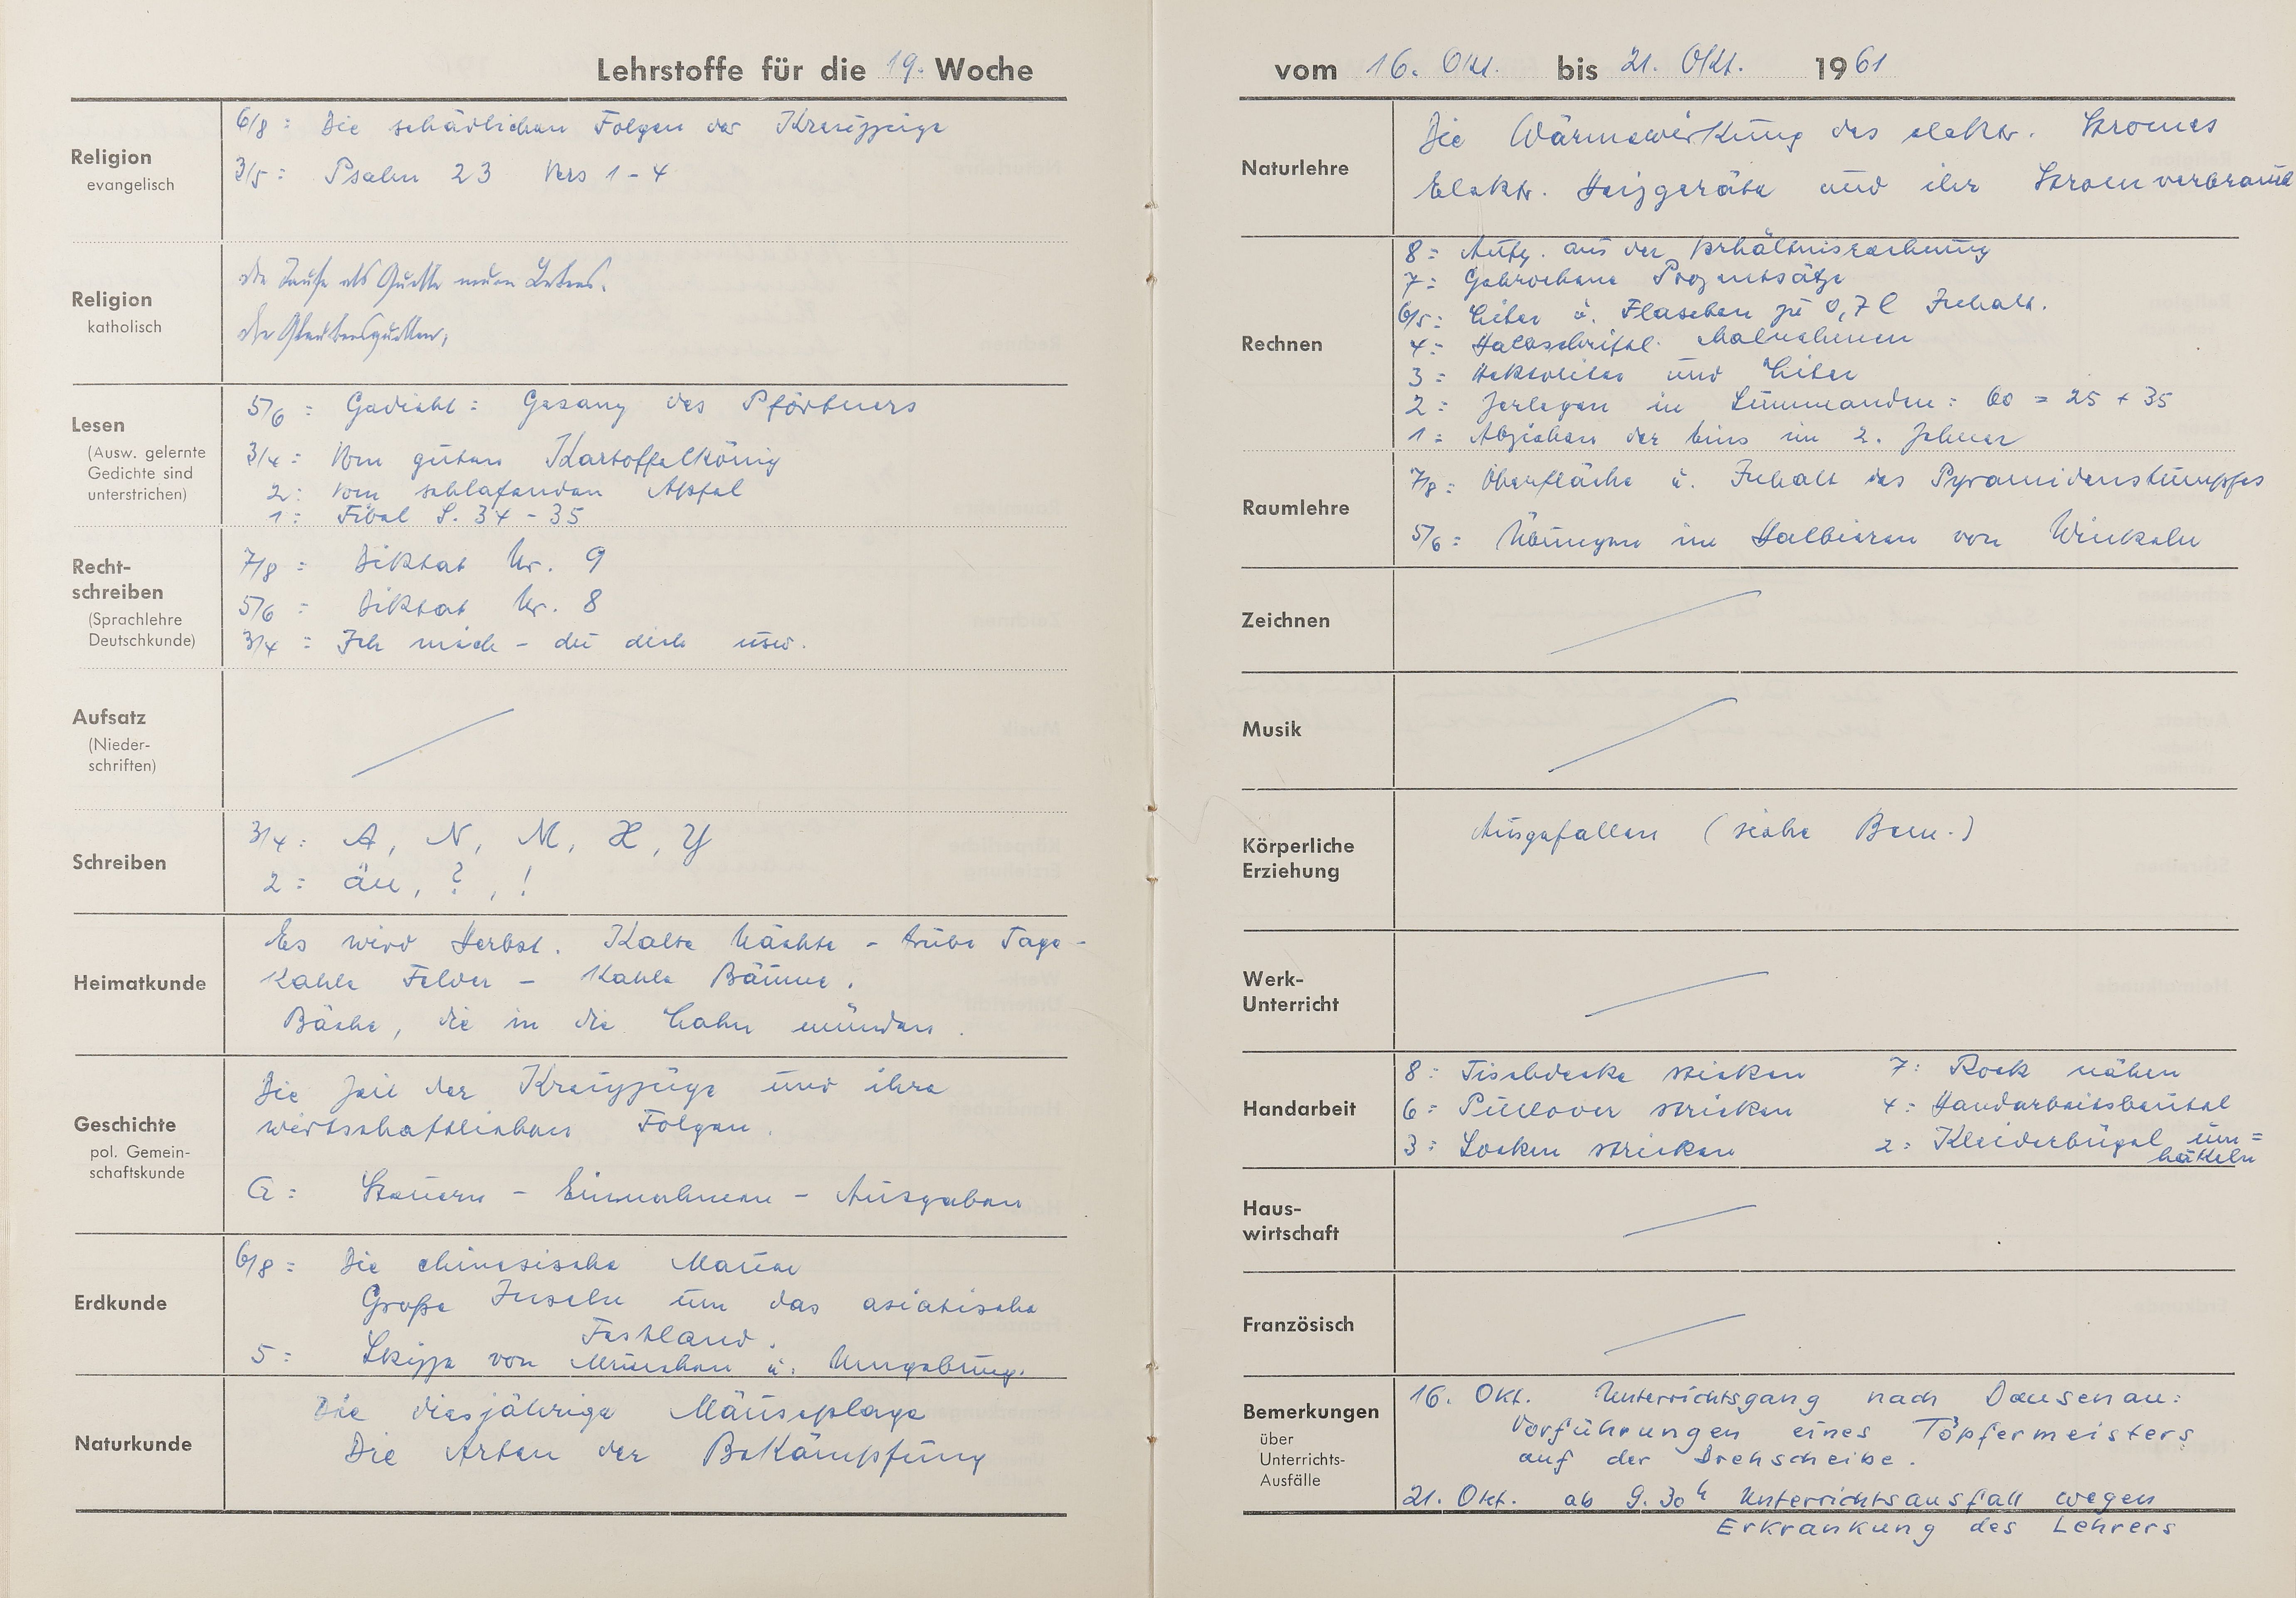 Lehrstoffe für die 19. Woche
Religion
evangelisch
6/8: Die schädlichen Folgen der Kreuzzüge
3/5: Psalm 23 Vers 1-4
Religion
katholisch
Die Taufe als Quelle neuen Lebens.
Die Glaubensquellen;
Lesen
(Ausw. gelernte
Gedichte sind
unterstrichen)
5/6: Gedicht: Gesang des Pförtners
3/4: Vom guten Kartoffelkönig
2: Vom schlafenden Apfel
1: Fibel S. 34-35
Recht-
schreiben
(Sprachlehre
Deutschkunde)
7/8: Diktat Nr. 9
5/6: Diktat Nr. 8
3/4: Ich mich - du dich usw.
Aufsatz
(Nieder-
schriften)
Schreiben
3/4: A, N, M, X, Y
2: äu, ?, !
Heimatkunde
Es wird Herbst. Kalte Nächte - trübe Tage -
Kahle Felder - Kahle Bäume.
Bäche, die in die Lahn münden.
Geschichte
pol. Gemein-
schaftskunde
Die Zeit der Kreuzzüge und ihre
wirtschaftlichen Folgen.
G: Steuern - Einnahmen - Ausgaben
Erdkunde
6/8: Die chinesische Mauer
Große Inseln um das asiatische
Festland.
5: Skizze von München u. Umgebung.
Naturkunde
Die diesjährige Mäuseplage
Die Arten der Bekämpfung
vom 16. Okt. bis 21. Okt. 1961
Naturlehre
Die Wärmewirkung des elektr. Stromes
Elektr. Heizgeräte und ihr Stromverbrauch
Rechnen
8: Aufg. aus der Verhältnisrechnung
7: Gebrochene Prozentsätze
6/5: Liter u. Flaschen zu 0,7 l Inhalt.
4: Halbschriftl. Malnehmen
3: Hektoliter und Liter
2: Zerlegen in Summanden: 60 = 25 + 35
1: Abziehen der Eins im 2. Zehner
Raumlehre
7/8: Oberfläche u. Inhalt des Pyramidenstumpfes
5/6: Übungen im Halbieren von Winkeln
Zeichnen
Musik
Körperliche
Erziehung
Ausgefallen (siehe Bem.)
Werk-
Unterricht
Handarbeit
8: Tischdecke sticken 7: Rock nähen
6: Pullover stricken 4: Handarbeitsbeutel
3: Socken stricken 2: Kleiderbügel um=
häkeln
Haus-
wirtschaft
Französisch
Bemerkungen
über
Unterrichts-
Ausfälle
16. Okt. Unterrichtsgang nach Dausenau:
Vorführungen eines Töpfermeisters
auf der Drehscheibe.
21. Okt. ab 9.30 h Unterrichtsausfall wegen
Erkrankung des Lehrers